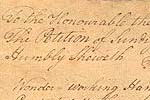 To the Honourable the
The Petition of Sund
Humbly Sheweth
Wonder-working Han